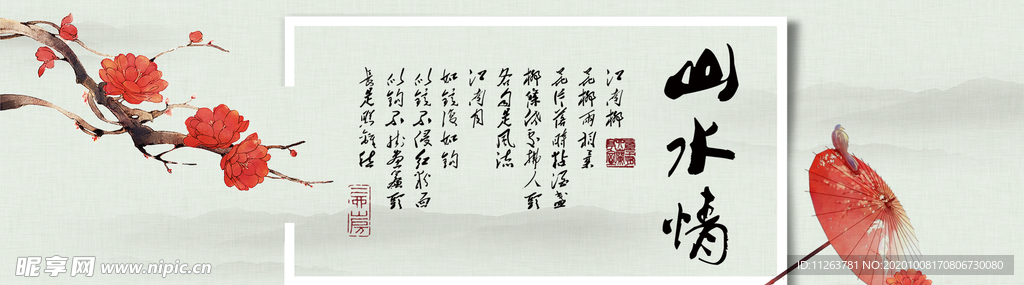 山水情
江南柳
花柳两相柔
花片落時拈酒盏
柳條低處拂人頭
各自是風流
江南月
如鏡復如鉤
似鏡不侵红粉面
似鉤不挂畫簾頭
長是照離愁
昵享网 www.nipic.cn
ID:11263781 NO:20201008170806730080